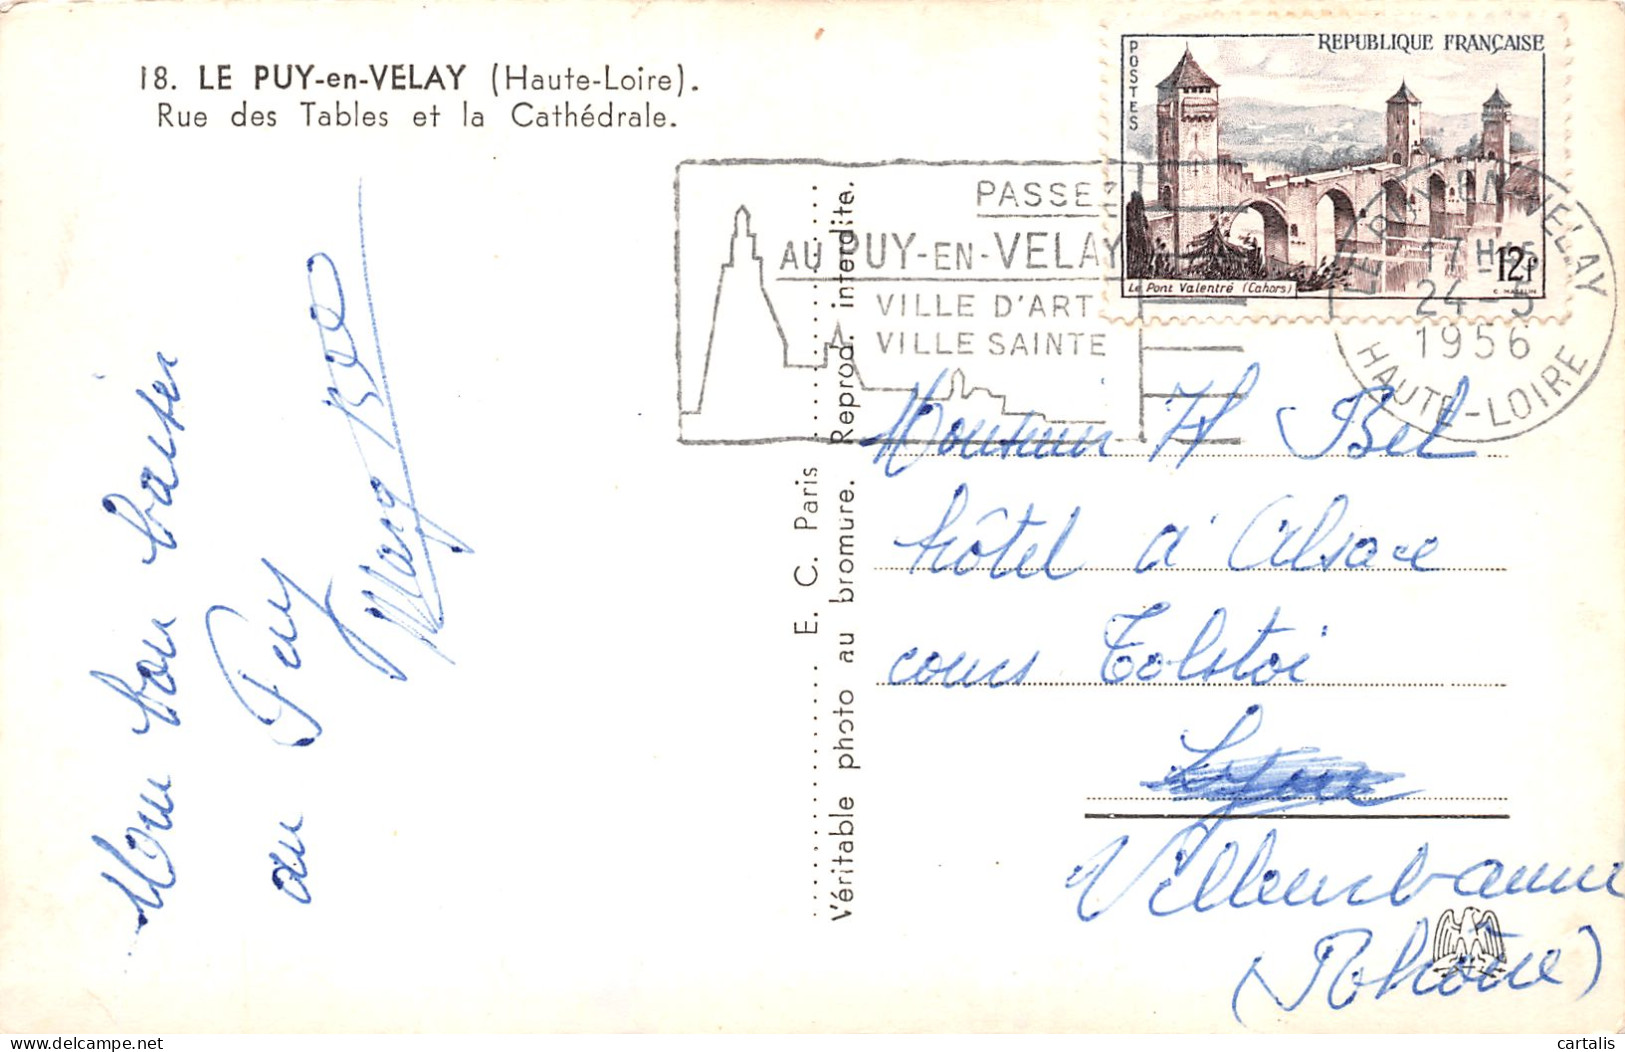 18. LE PUY-en-VELAY (Haute-Loire).
Rue des Tables et la Cathédrale.
POSTES
REPUBLIQUE FRANÇAISE
Le Pont Valentré (Cahors)
12f
PASSEZ
AU PUY-EN-VELAY
VILLE D'ART
VILLE SAINTE
LE PUY-EN-VELAY
17 H
24-5
1956
HAUTE-LOIRE
E. C. Paris
Véritable photo au bromure. Reprod. interdite.
Mon bon baiser
du Puy
Monsieur H Bel
hôtel d'Alsace
cours Tolstoi
Lyon
Villeurbanne
(Rhône)
cartalis